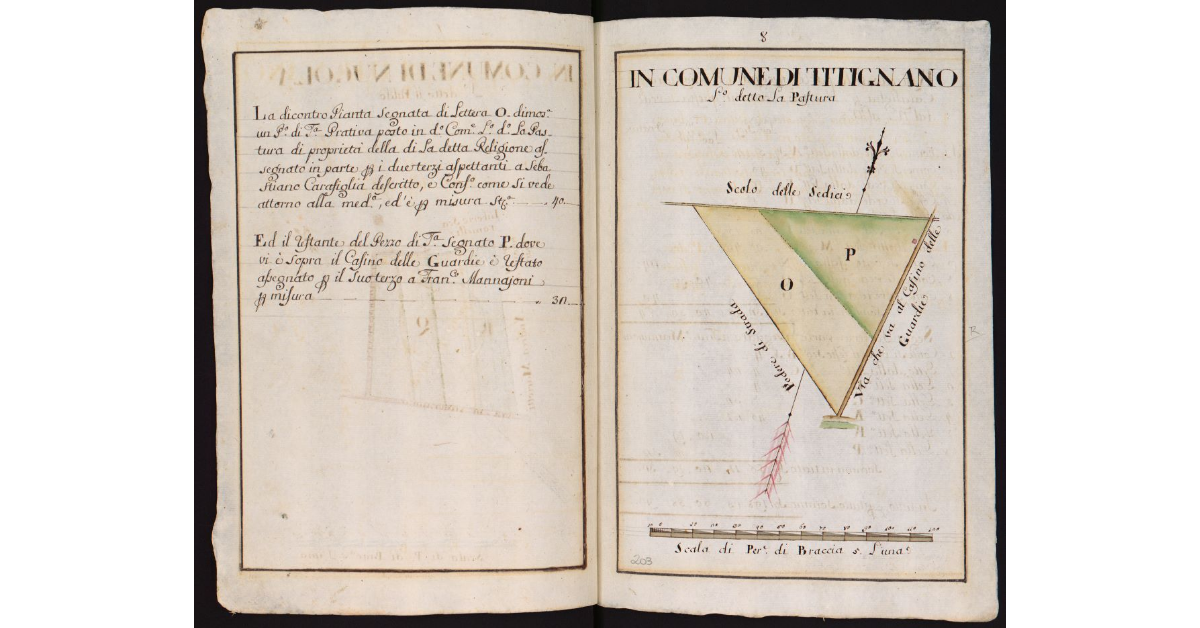 La dicontro Pianta segnata di Lettera O. dimosᵃ
un Pº. di Tᵃ. Prativa posto in dº. Comᵉ. Lº. dº. La Pas-
tura di proprietà della di Sa detta Religione as
segnato in parte ꝑ i due terzi aspettanti a Seba
stiano Carafiglia descritto, e Confº. come si vede
attorno alla medᵃ., ed'è ꝑ misura 40.
Ed il restante del Pezzo di Tᵃ. segnato P. dove
vi è sopra il Casino delle Guardie è restato
assegnato ꝑ il suo terzo a Francº. Mannajoni
ꝑ misura 30.
8
IN COMUNE DI TITIGNANO
Lº. detto La Pastura
Scolo delle Sedici
P
O
Podere di Strada
Via che va al Casino delle
Guardie
Scala di Perᵉ. di Braccia 5. l'unaᵉ
203